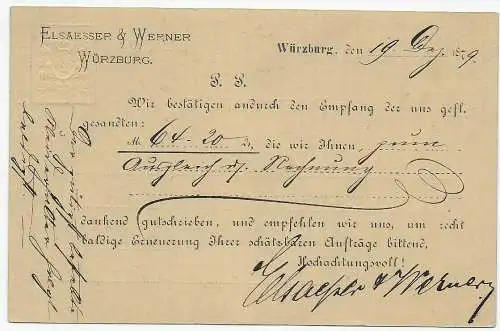 ELSAESSER & WERNER
WÜRZBURG.
Würzburg, den 19 Dez. 1879.
P. P.
Wir bestätigen andurch den Empfang der uns gefl.
gesandten:
M. 64.20 d, die wir Ihnen, zum
Ausgleich d/ Rechnung
dankend gutschrieben, und empfehlen wir uns, um recht
baldige Erneuerung Ihrer schätzbaren Aufträge bittend,
Hochachtungsvoll!
Elsaesser & Werner